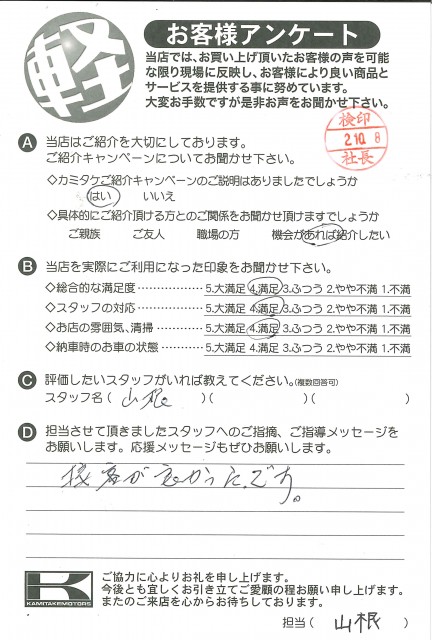 軽
お客様アンケート
当店では、お買い上げ頂いたお客様の声を可能
な限り現場に反映し、お客様により良い商品と
サービスを提供する事に努めています。
大変お手数ですが是非お声をお聞かせ下さい。
検印
2.10.8
社長
A 当店はご紹介を大切にしております。
ご紹介キャンペーンについてお聞かせ下さい。
◇カミタケご紹介キャンペーンのご説明はありましたでしょうか
はい いいえ
◇具体的にご紹介頂ける方とのご関係をお聞かせ頂けますでしょうか
ご親族 ご友人 職場の方 機会があれば紹介したい
B 当店を実際にご利用になった印象をお聞かせ下さい。
◇総合的な満足度 ⋯⋯⋯⋯⋯ 5.大満足 4.満足 3.ふつう 2.やや不満 1.不満
◇スタッフの対応 ⋯⋯⋯⋯⋯ 5.大満足 4.満足 3.ふつう 2.やや不満 1.不満
◇お店の雰囲気、清掃 ⋯⋯⋯ 5.大満足 4.満足 3.ふつう 2.やや不満 1.不満
◇納車時のお車の状態 ⋯⋯⋯ 5.大満足 4.満足 3.ふつう 2.やや不満 1.不満
C 評価したいスタッフがいれば教えてください。(複数回答可)
スタッフ名 ( 山根 )( )( )
D 担当させて頂きましたスタッフへのご指摘、ご指導メッセージを
お願いします。応援メッセージもぜひお願いします。
接客が良かったです。
K
KAMITAKEMOTORS
ご協力に心よりお礼を申し上げます。
今後とも宜しくお引き立てご愛顧の程お願い申し上げます。
またのご来店を心からお待ちしております。
担当 ( 山根 )